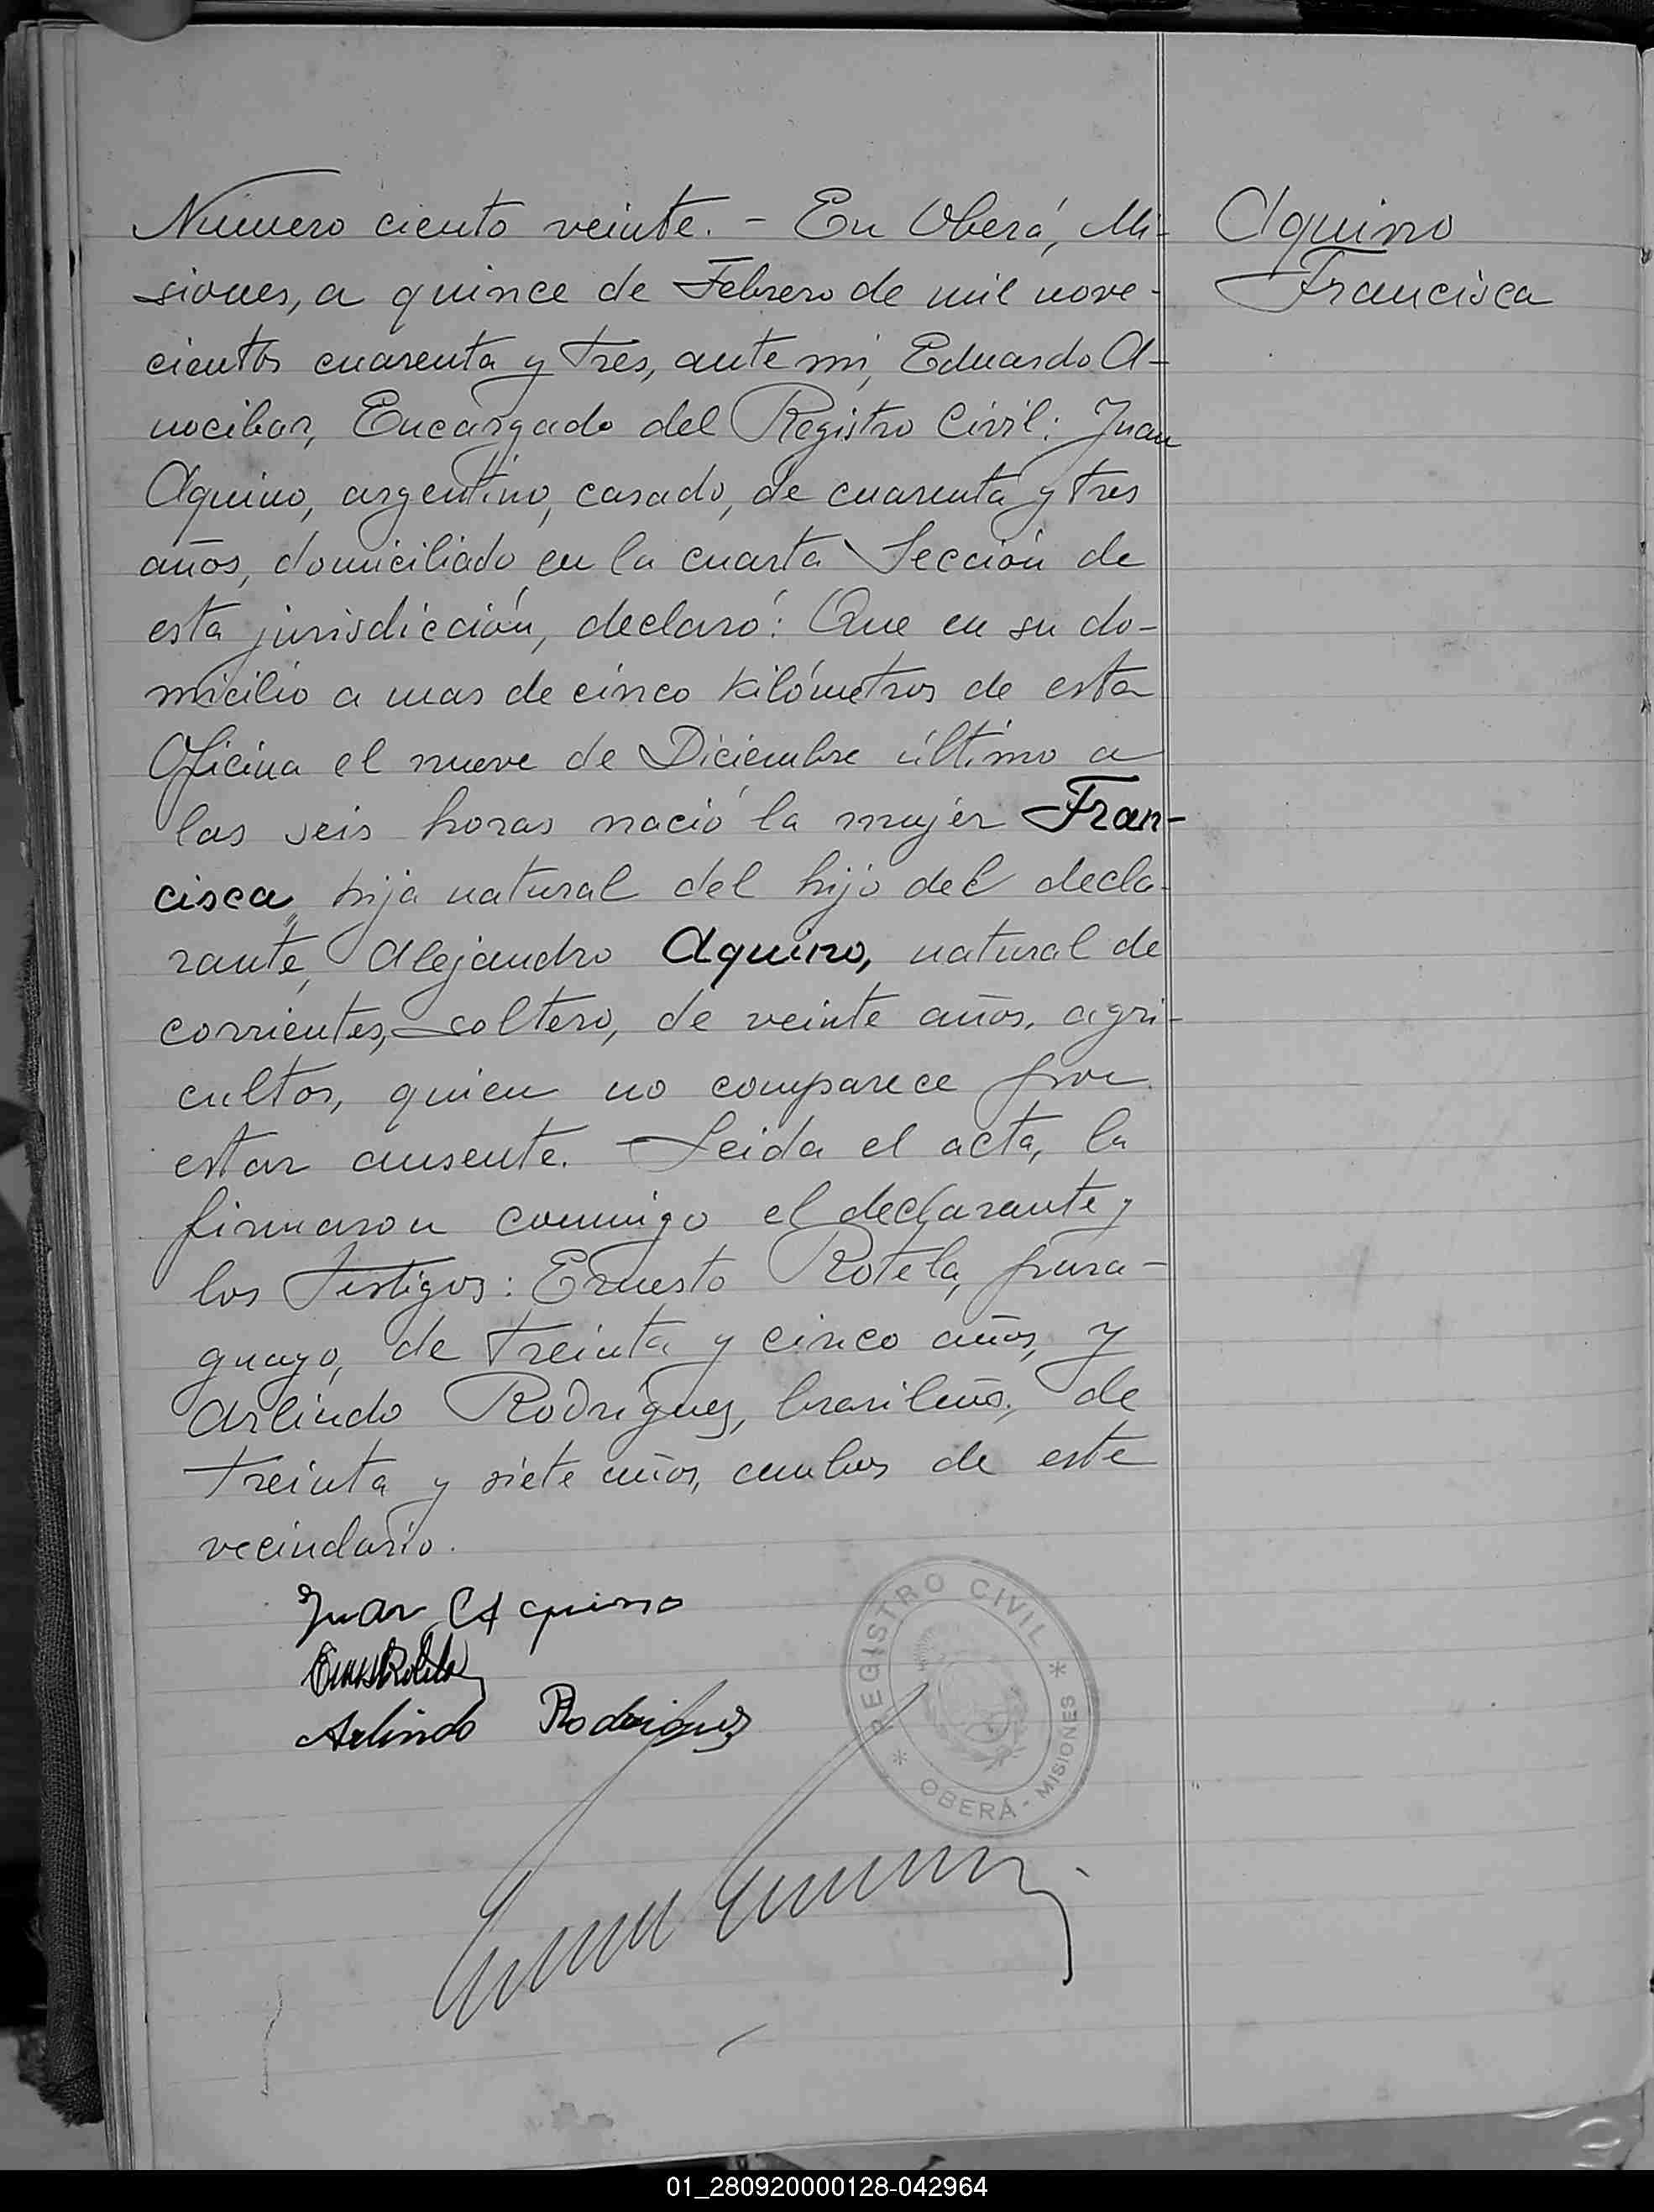 Numero ciento veinte. - En Oberá, Mi-
siones, a quince de Febrero de mil nove-
cientos cuarenta y tres, ante mi, Eduardo A-
nocibar, Encargado del Registro Civil: Juan
Aquino, argentino, casado, de cuarenta y tres
años, domiciliado en la cuarta Sección de
esta jurisdicción, declaró: Que en su do-
micilio a mas de cinco kilómetros de esta
Oficina el nueve de Diciembre último a
las seis horas nació la mujer Fran-
cisca, hija natural del hijo del decla-
rante, Alejandro Aquino, natural de
corrientes, soltero, de veinte años, agri-
cultor, quien no comparece por
estar ausente. Leida el acta, la
firmaron conmigo el declarante y
los Testigos: Ernesto Rotela, para-
guayo, de treinta y cinco años, y
Arlindo Rodriguez, brasileño, de
treinta y siete años, ambos de este
vecindario.
Aquino
Francisca
Juan Aquino
Arlindo Rodriguez
REGISTRO CIVIL
* OBERÁ - MISIONES *
01_280920000128-042964